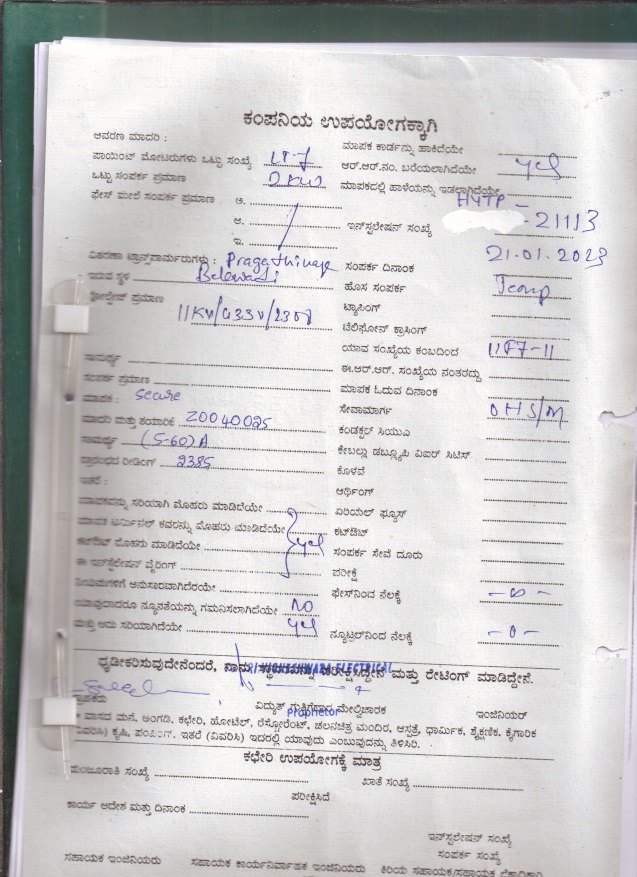 ಕಂಪನಿಯ ಉಪಯೋಗಕ್ಕಾಗಿ
ಆವರಣ ಮಾದರಿ :
ಪಾಯಿಂಟ್ ಮೋಟರುಗಳು ಒಟ್ಟು ಸಂಖ್ಯೆ LT-7
ಒಟ್ಟು ಸಂಪರ್ಕ ಪ್ರಮಾಣ 2KW
ಫೇಸ್ ಮೇಲೆ ಸಂಪರ್ಕ ಪ್ರಮಾಣ ಅ.
ಆ.
ಇ.
ವಿತರಣಾ ಟ್ರಾನ್ಸ್‌ಫಾರ್ಮರುಗಳು :
ಇರುವ ಸ್ಥಳ Belawadi
ವೋಲ್ಟೇಜ್ ಪ್ರಮಾಣ 11KV/433V/230V
ಸಾಮರ್ಥ್ಯ
ಸಂಪರ್ಕ ಪ್ರಮಾಣ
ಮಾಪಕ : Secure
ಮಾದರಿ ಮತ್ತು ತಯಾರಿಕೆ Z0040025
ಸಾಮರ್ಥ್ಯ (5-60)A
ಪ್ರಾರಂಭದ ರೀಡಿಂಗ್ 2385
ಇತರೆ :
ಮಾಪಕವನ್ನು ಸರಿಯಾಗಿ ಮೊಹರು ಮಾಡಿದೆಯೇ
ಮಾಪಕ ಟರ್ಮಿನಲ್ ಕವರನ್ನು ಮೊಹರು ಮಾಡಿದೆಯೇ yes
ಕಟ್‌ಔಟ್ ಮೊಹರು ಮಾಡಿದೆಯೇ
ಈ ಇನ್‌ಸ್ಟಲೇಷನ್ ವೈರಿಂಗ್
ನಿಯಮಗಳಿಗೆ ಅನುಸಾರವಾಗಿದೆಯೇ
ಯಾವುದಾದರೂ ನ್ಯೂನತೆಯನ್ನು ಗಮನಿಸಲಾಗಿದೆಯೇ NO
ಮತ್ತು ಅದು ಸರಿಯಾಗಿದೆಯೇ yes
ಮಾಪಕ ಕಾರ್ಡನ್ನು ಹಾಕಿದೆಯೇ
ಆರ್.ಆರ್.ನಂ. ಬರೆಯಲಾಗಿದೆಯೇ yes
ಮಾಪಕದಲ್ಲಿ ಹಾಳೆಯನ್ನು ಇಡಲಾಗಿದೆಯೇ
HYTP -
ಇನ್‌ಸ್ಟಲೇಷನ್ ಸಂಖ್ಯೆ -21113
ಸಂಪರ್ಕ ದಿನಾಂಕ 21.01.2023
ಹೊಸ ಸಂಪರ್ಕ Temp
ಟ್ಯಾಸಿಂಗ್
ಟೆಲಿಫೋನ್ ಕ್ರಾಸಿಂಗ್
ಯಾವ ಸಂಖ್ಯೆಯ ಕಂಬದಿಂದ
ಈ.ಆರ್.ಆರ್. ಸಂಖ್ಯೆಯ ನಂತರದ್ದು
ಮಾಪಕ ಓದುವ ದಿನಾಂಕ
ಸೇವಾಮಾರ್ಗ OHS/M
ಕಂಡಕ್ಟರ್ ಸಿಯುಎ
ಕೇಬಲ್ಲು ಡಬ್ಲ್ಯೂಪಿ ವಿಐಆರ್ ಸಿಟಿಸ್
ಕೊಳವೆ
ಆರ್ಥಿಂಗ್
ಏರಿಯಲ್ ಫ್ಯೂಸ್
ಕಟ್‌ಔಟ್
ಸಂಪರ್ಕ ಸೇವೆ ದೂರು
ಪರೀಕ್ಷೆ
ಫೇಸ್‌ನಿಂದ ನೆಲಕ್ಕೆ
ನ್ಯೂಟ್ರಲ್‌ನಿಂದ ನೆಲಕ್ಕೆ -0-
ಧೃಡೀಕರಿಸುವುದೇನೆಂದರೆ, ನಾನು ಮತ್ತು ರೇಟಿಂಗ್ ಮಾಡಿದ್ದೇನೆ.
ELECTRICAL
ವಿದ್ಯುತ್ ಗುತ್ತಿಗೆದಾರ ಮೇಲ್ವಿಚಾರಕ
ಇಂಜಿನಿಯರ್
Proprietor
* ವಾಸದ ಮನೆ, ಅಂಗಡಿ, ಕಛೇರಿ, ಹೋಟೆಲ್, ರೆಸ್ಟೋರೆಂಟ್, ಚಲನಚಿತ್ರ ಮಂದಿರ, ಆಸ್ಪತ್ರೆ, ಧಾರ್ಮಿಕ, ಶೈಕ್ಷಣಿಕ, ಕೈಗಾರಿಕ
ಕೃಷಿ, ಪಂಪಿಂಗ್, ಇತರೆ (ವಿವರಿಸಿ) ಇದರಲ್ಲಿ ಯಾವುದು ಎಂಬುವುದನ್ನು ತಿಳಿಸಿರಿ.
ಕಛೇರಿ ಉಪಯೋಗಕ್ಕೆ ಮಾತ್ರ
ಮಂಜೂರಾತಿ ಸಂಖ್ಯೆ
ಖಾತೆ ಸಂಖ್ಯೆ
ಪರೀಕ್ಷಿಸಿದೆ
ಕಾರ್ಯ ಆದೇಶ ಮತ್ತು ದಿನಾಂಕ
ಇನ್‌ಸ್ಟಲೇಷನ್ ಸಂಖ್ಯೆ
ಸಂಪರ್ಕ ಸಂಖ್ಯೆ
ಸಹಾಯಕ ಇಂಜಿನಿಯರು
ಸಹಾಯಕ ಕಾರ್ಯನಿರ್ವಾಹಕ ಇಂಜಿನಿಯರು
ಕಿರಿಯ ಸಹಾಯಕ/ಸಹಾಯಕ